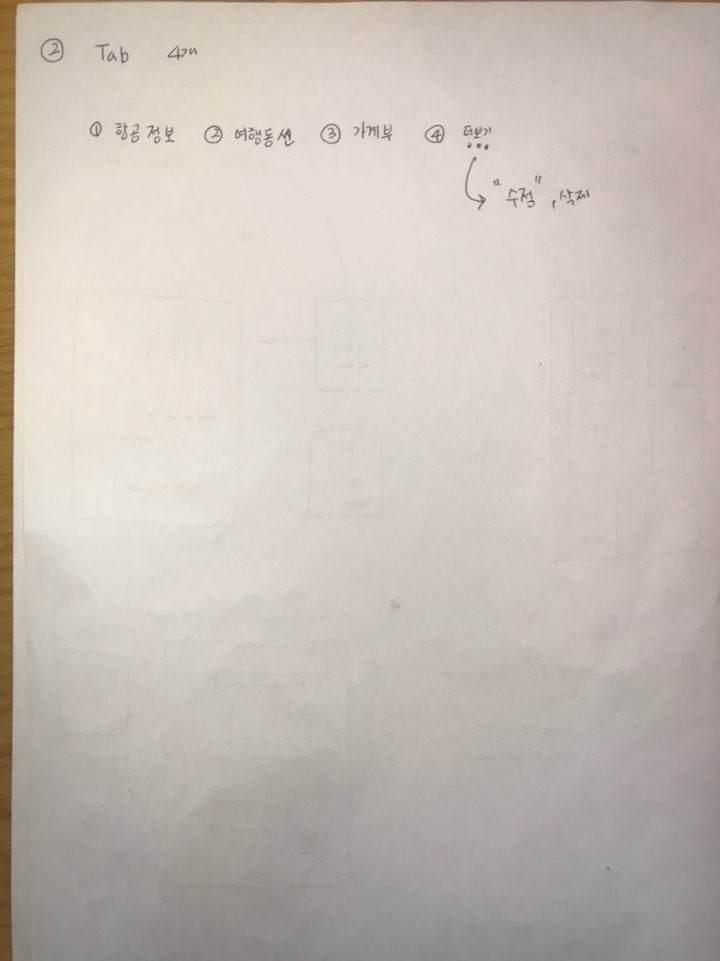 ② Tab 4개
① 항공정보 ② 여행동선 ③ 가계부 ④ 더보기
"수정", 삭제